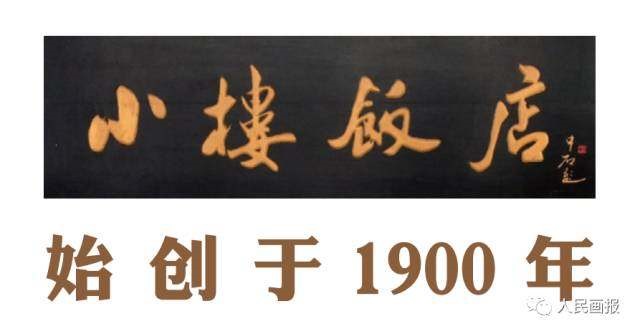 小樓飯店
中石題
始创于1900年
人民画报